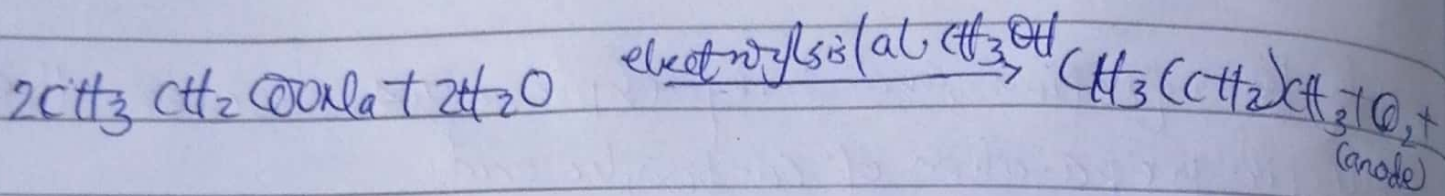 2CH3 CH2 COONa + 2H2O electrolysis/al. CH3OH → CH3(CH2)CH3 + O2 +
(anode)